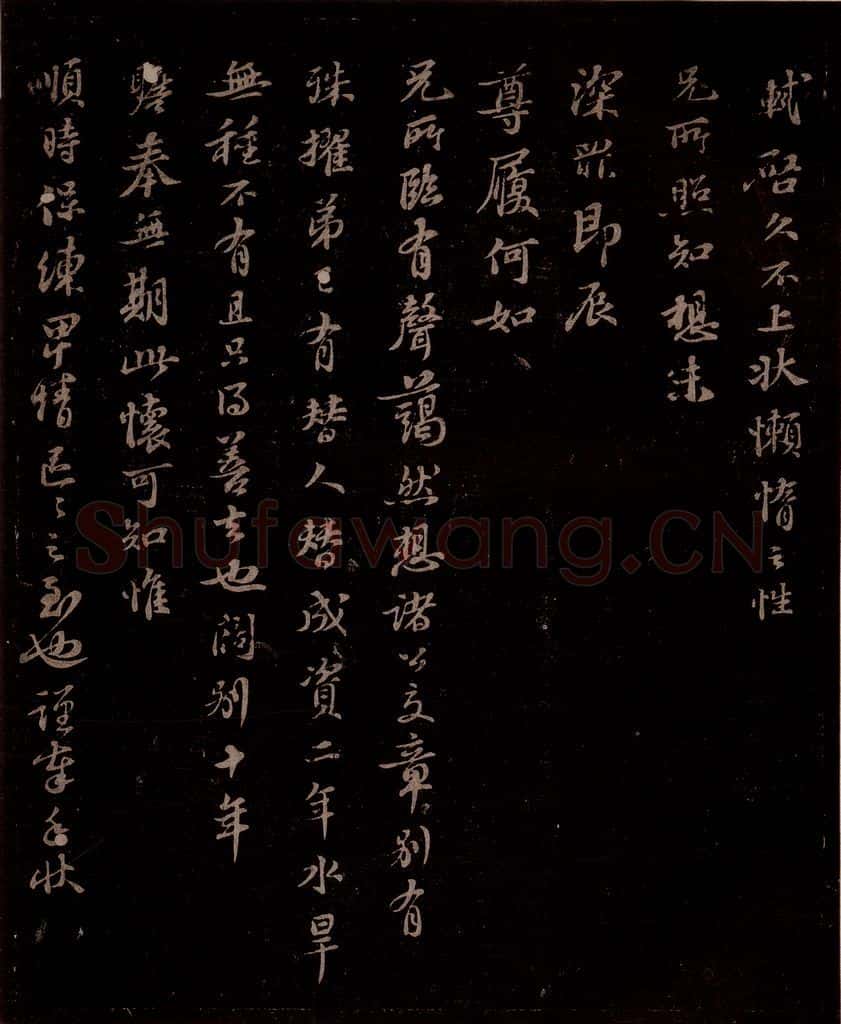 軾啓久不上狀懶惰之性
兄所照知想未
深罪即辰
尊履何如
兄所臨有聲藹然想諸公交章別有
殊擢弟已有替人替成資二年水旱
無種不有且只得善去也闊別十年
瞻奉無期此懷可知惟
順時保練卑情區區之至也謹奉手狀
Shufawang.CN